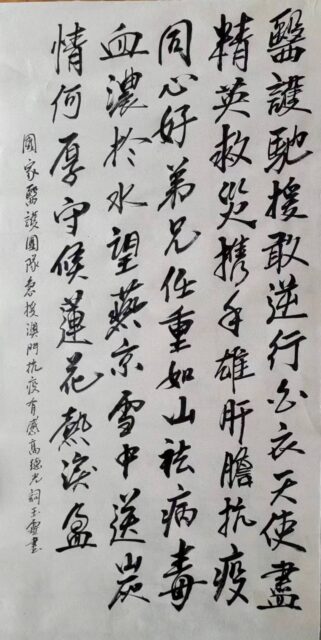 醫護馳援敢逆行白衣天使盡
精英救災携手雄肝膽抗疫
同心好弟兄任重如山祛病毒
血濃於水望燕京雪中送炭
情何厚守候蓮花熱淚盈
國家醫護團隊急援澳門抗疫有感高總先詞玉雪書